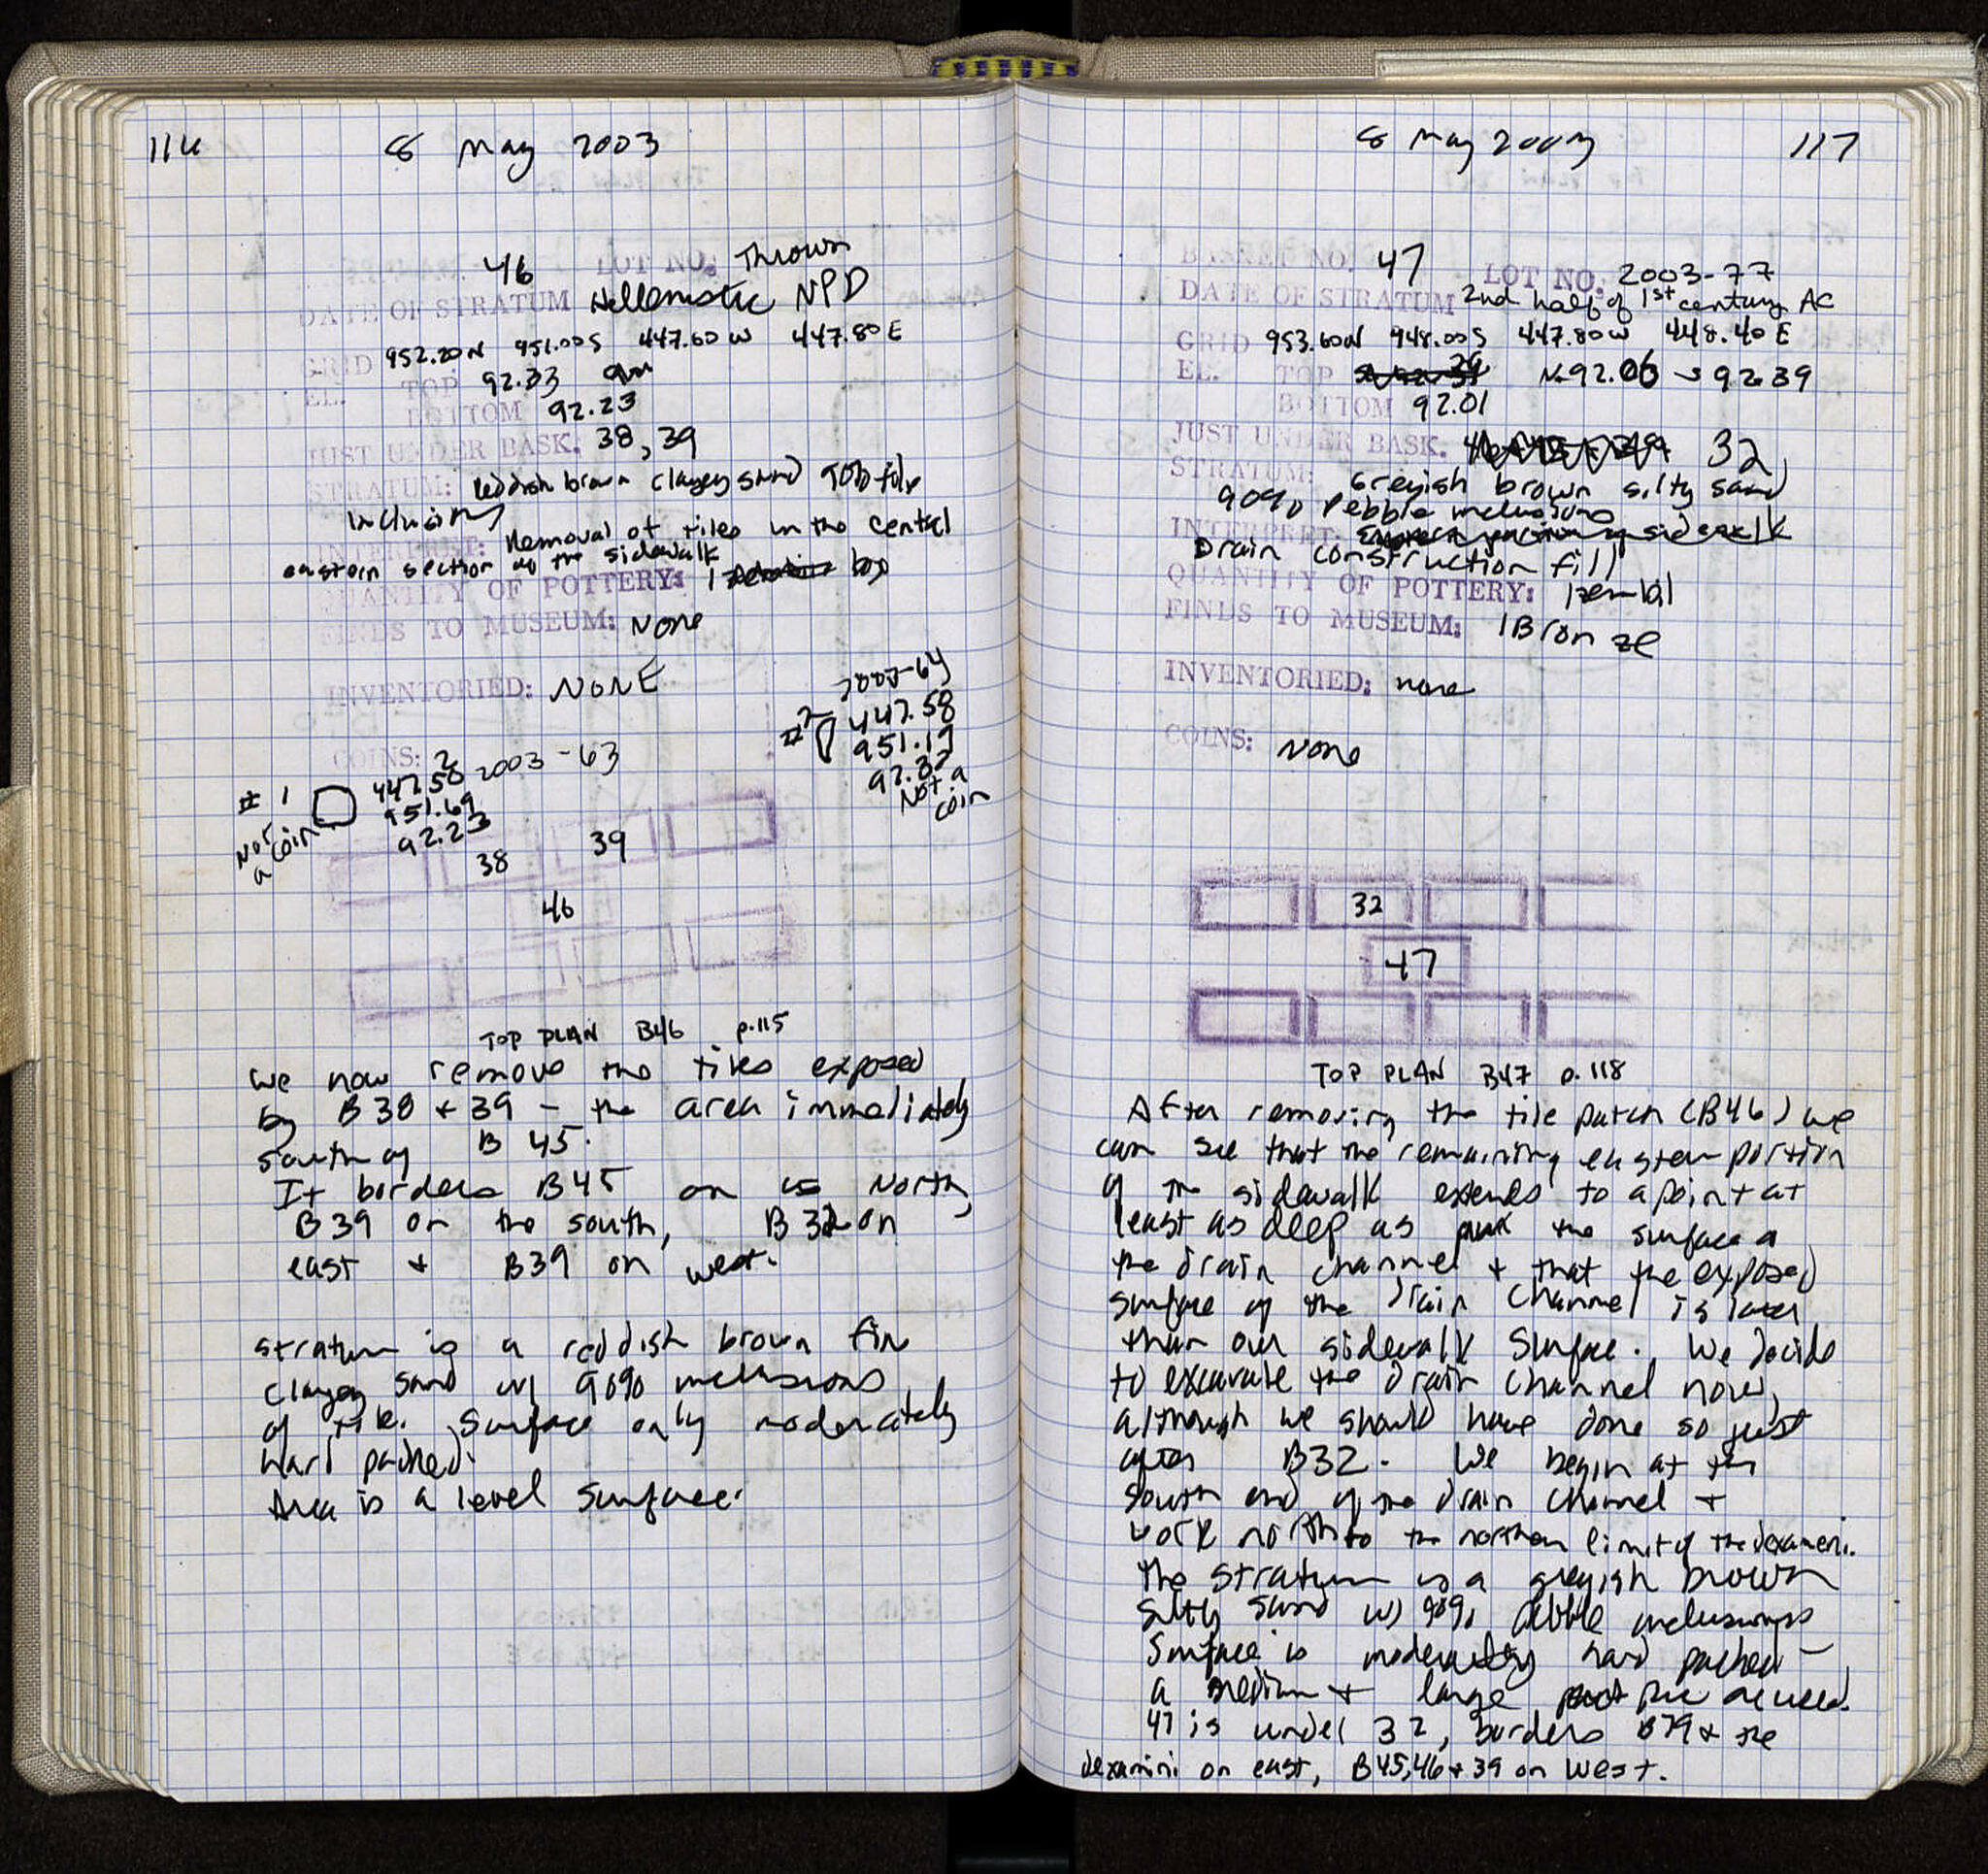 116 8 May 2003
BASKET NO. 46 LOT NO: Thrown
DATE OF STRATUM Hellenistic NPD
GRID 952.20N 951.00S 447.60W 447.80E
EL. TOP 92.33
BOTTOM 92.23
JUST UNDER BASK: 38, 39
STRATUM: Reddish brown clayey sand 90% tile
inclusions
INTERPRET: Removal of tiles in the central
eastern section of the sidewalk
QUANTITY OF POTTERY: 1 bag
FINDS TO MUSEUM: None
INVENTORIED: NONE
COINS: 2
#1 447.58 2003-63
951.69
92.23
Not a coin
2003-64
#2 447.58
951.19
92.32
Not a
coin
38 39
46
TOP PLAN B46 p.115
We now remove the tiles exposed
by B38 + 39 - the area immediately
south of B 45.
It borders B45 on its North,
B39 on the south, B32 on
east + B39 on west.
Stratum is a reddish brown fin
clayey sand w/ 90% inclusions
of tile. Surface only moderately
hard packed.
Area is a level surface.
8 May 2003 117
BASKET NO. 47 LOT NO. 2003-77
DATE OF STRATUM 2nd half of 1st century AC
GRID 953.60N 948.00S 447.80W 448.40E
EL. TOP N.92.06 S 92.39
BOTTOM 92.01
JUST UNDER BASK. 32
STRATUM: Greyish brown silty sand
90% Pebble inclusions
INTERPRET: sidewalk
Drain construction fill
QUANTITY OF POTTERY: 1 zembil
FINDS TO MUSEUM: 1 Bronze
INVENTORIED: none
COINS: None
32
47
TOP PLAN B47 p.118
After removing the tile patch (B46) we
can see that the remaining eastern portion
of the sidewalk extends to a point at
least as deep as the surface of
the drain channel + that the exposed
surface of the drain channel is later
than our sidewalk surface. We decide
to excavate the drain channel now,
although we should have done so just
after B32. We begin at the
south end of the drain channel +
work north to the northern limit of the dexameni.
The stratum is a greyish brown
silty sand w/ 90% pebble inclusions
Surface is moderately hard packed -
a medium + large pic are used.
47 is under 32, borders B79 + the
dexamini on east, B45,46 + 39 on west.